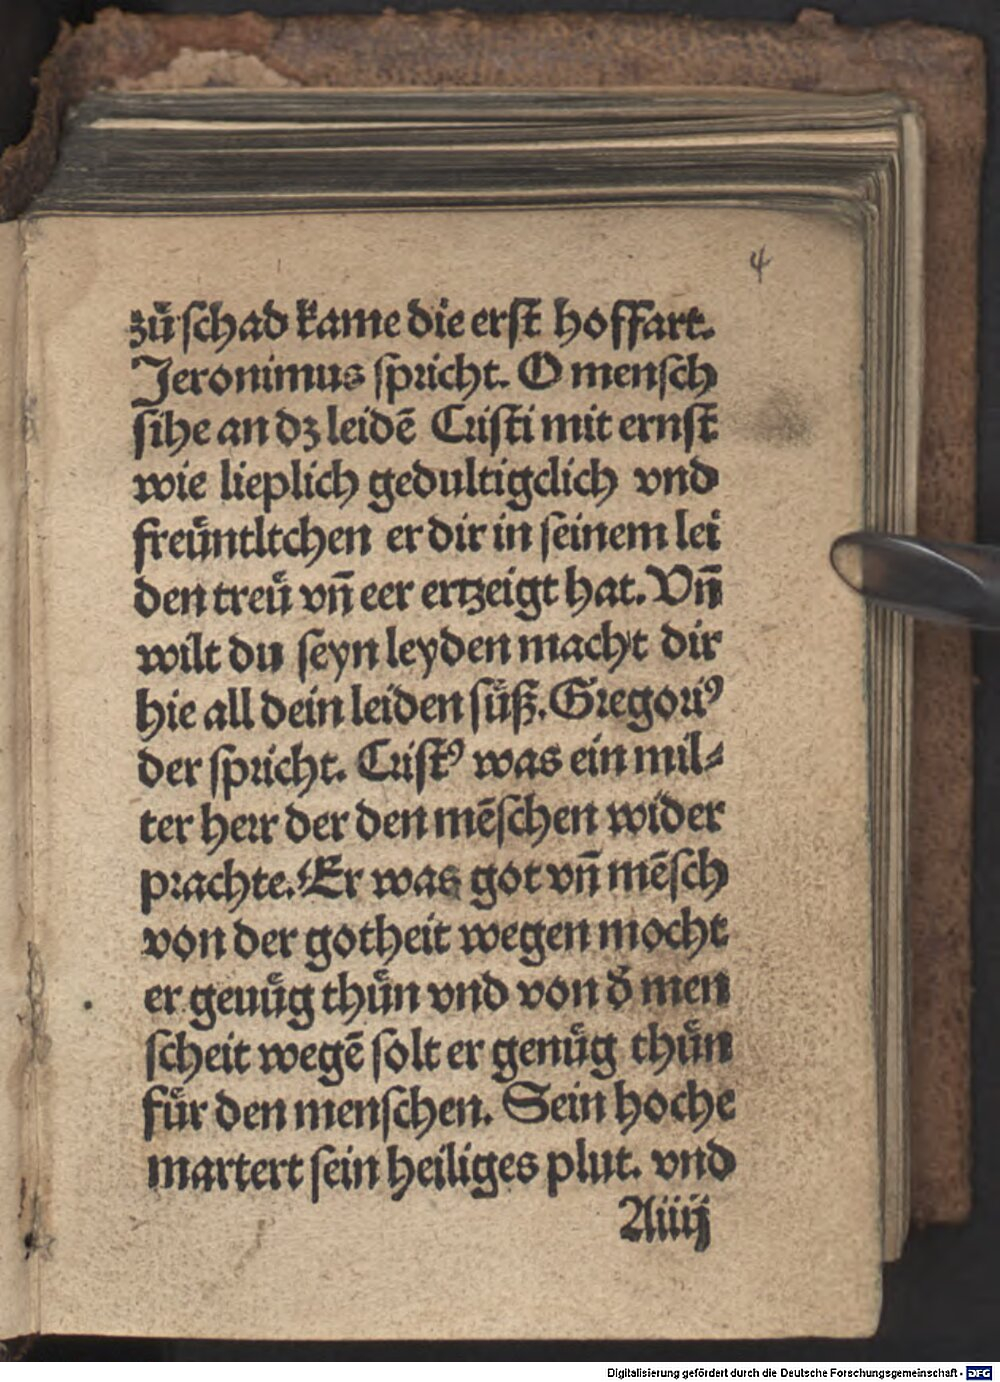 4
zů schad kame die erst hoffart.
Jeronimus spricht. O mensch
sihe an dz leidē Cristi mit ernst
wie lieplich gedultigclich vnd
freüntltchen er dir in seinem lei
den treü vn̄ eer ertzeigt hat. Vn̄
wilt du seyn leyden macht dir
hie all dein leiden süß. Gregoriꝰ
der spricht. Cristꝰ was ein mil⸗
ter herr der den mēschen wider
prachte. Er was got vn̄ mēsch
von der gotheit wegen mocht
er genůg thůn vnd von d̕ men
scheit wegē solt er genůg thůn
für den menschen. Sein hoche
martert sein heiliges plut. vnd
Aiiij
Digitalisierung gefördert durch die Deutsche Forschungsgemeinschaft - DFG